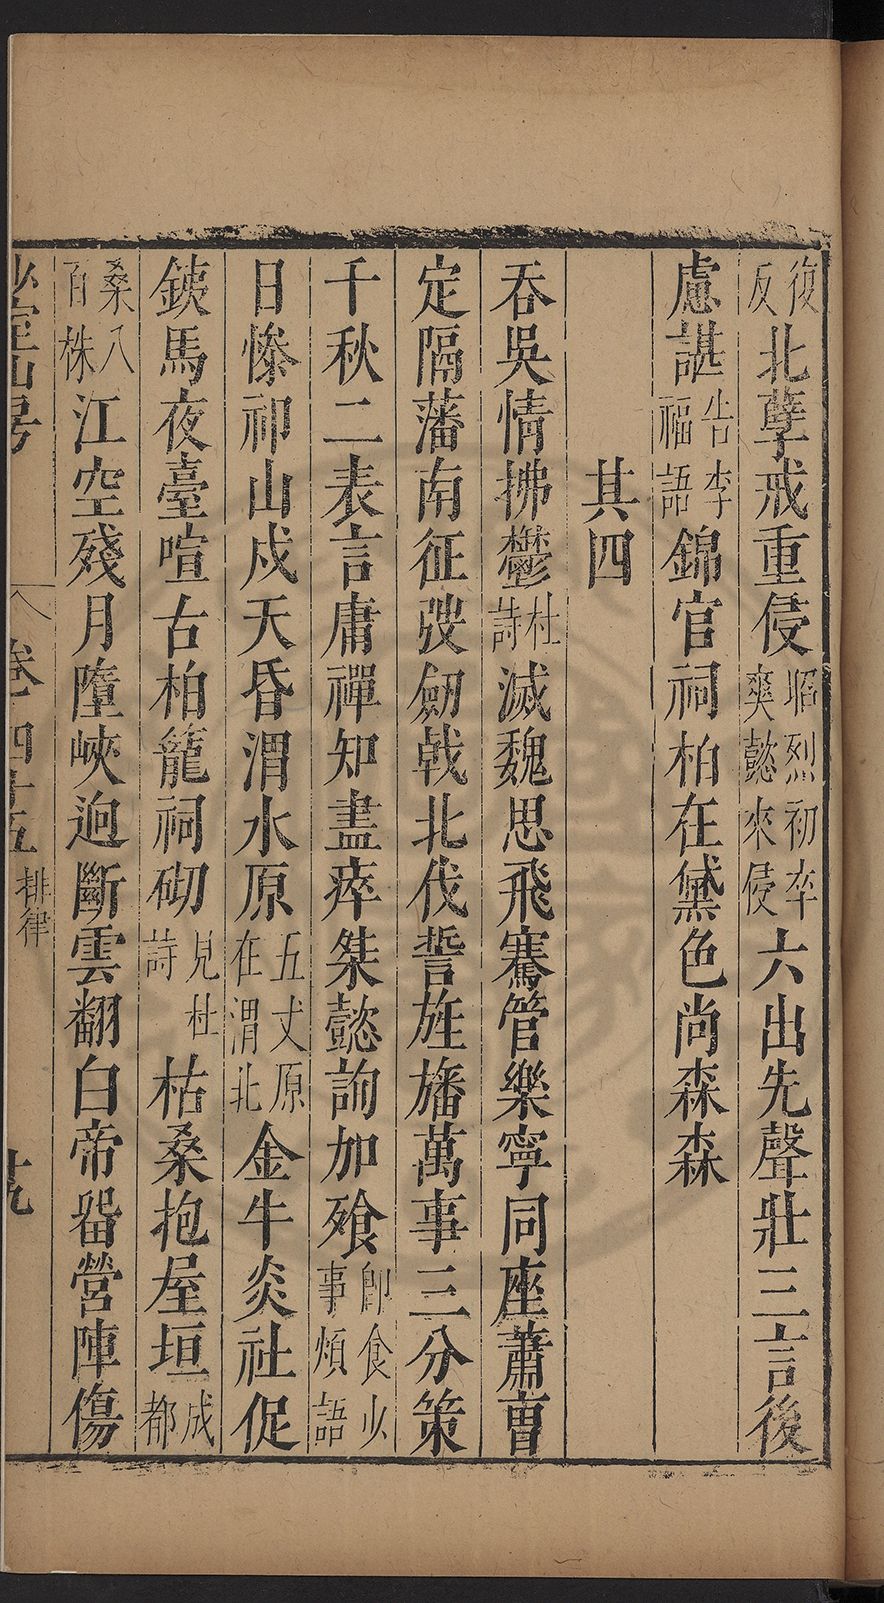 復反北孽戒重侵昭烈初卒爽懿來侵六出先聲壯三言後
慮諶告李福語錦官祠柏在黛色尚森森
其四
吞吳情拂鬱杜詩滅魏思飛騫管樂寧同座蕭曹
定隔藩南征彂劒戟北伐誓旌旛萬事三分策
千秋二表言庸禪知盡瘁桀懿詢加飱即食少事煩語
日慘祁山戍天昏渭水原五丈原在渭北金牛炎社促
鉄馬夜臺喧古柏籠祠砌見杜詩枯桑抱屋垣成都
桑八百株江空殘月墮峽逈斷雲翻白帝畱營陣傷
少室山房 卷四十五 排律